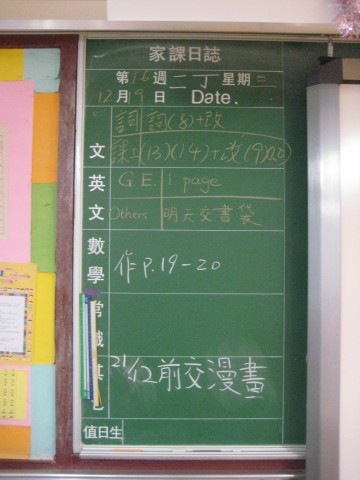 家課日誌
第16週 二丁 星期三
12月19日 Date.
詞 詞(8)+改
課工(13)(14)+改(9)
文
英 G.E. 1 page
文 Others 明天交書袋
數
學 作P.19-20
常
識
其 21/12前交漫畫
值日生